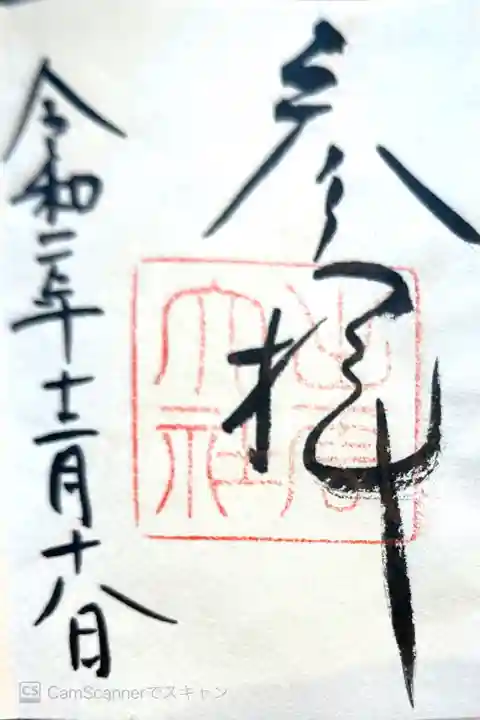 参拝
出雲
大社
令和二年十二月十八日
CS CamScannerでスキャン